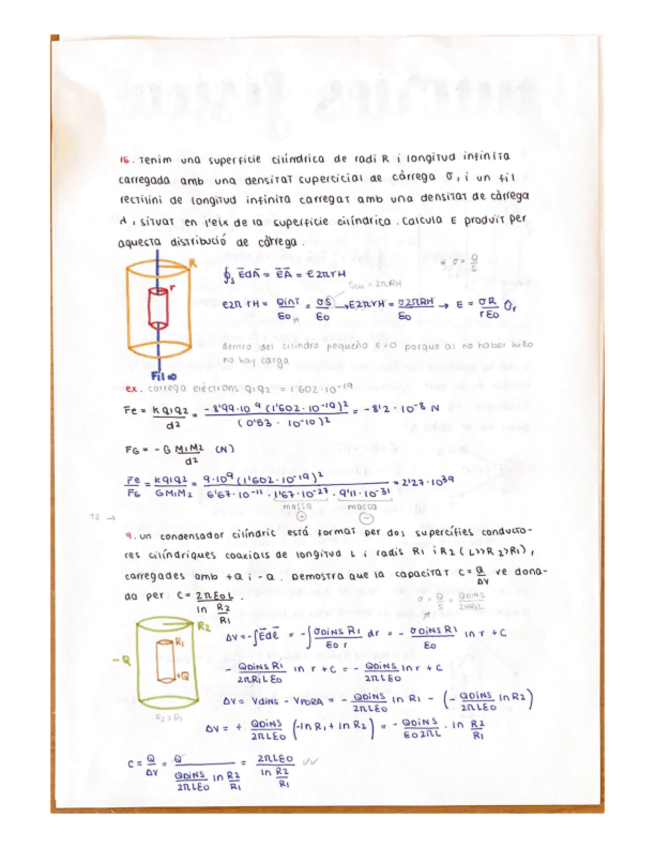 16. Tenim una superfície cilíndrica de radi R i longitud infinita
carregada amb una densitat supercicial de càrrega σ, i un fil
rectilini de longitud infinita carregat amb una densitat de càrrega
λ, situat en l'eix de la superfície cilíndrica. Calcula E produït per
aquesta distribució de càrrega.
* σ = Q/S
R
r
Fil ∞
∮s E dA = EA = E2πrH
Sca = 2πRH
E2π rH = Qint/εo = σS/εo → E2πrH = σ2πRH/εo → E = σR/rεo Ûr
dentro del cilindro pequeño E=0 porque al no haber hilo
no hay carga
ex. càrrega elèctrons q1q2 = 1'602·10-19
Fe = Kq1q2/d2 = -8'99·10 9 (1'602·10-19)2/(0'53 · 10-10)2 = -8'2 · 10-8 N
FG = - G M1M2/d2 (N)
Fe/FG = Kq1q2/GM1M2 = 9·109 (1'602·10-19)2/6'67·10-11 · 1'67·10-27 · 9'11·10-31 = 2'27·1039
massa + massa -
T2 →
9. un condensador cilíndric està format per dos supercífies conducto-
res cilíndriques coaxials de longitud L i radis R1 i R2 (L>>R2>R1),
carregades amb +Q i -Q. Demostra que la capacitat C = Q/ΔV ve dona-
da per C = 2πεoL/ln R2/R1.
σ = Q/S = QDINS/2πR1L
R2
R1
-Q
+Q
R2 > R1
ΔV = -∫Edl = -∫ σDINS R1/εo r dr = - σDINS R1/εo ln r + C
- QDINS R1/2πR1Lεo ln r + C = - QDINS/2πLεo ln r + C
ΔV = VDINS - VFORA = - QDINS/2πLεo ln R1 - (- QDINS/2πLεo ln R2)
ΔV = + QDINS/2πLεo (-ln R1 + ln R2) = - QDINS/εo2πL · ln R2/R1
C = Q/ΔV = Q/(QDINS/2πLεo ln R2/R1) = 2πLεo/ln R2/R1